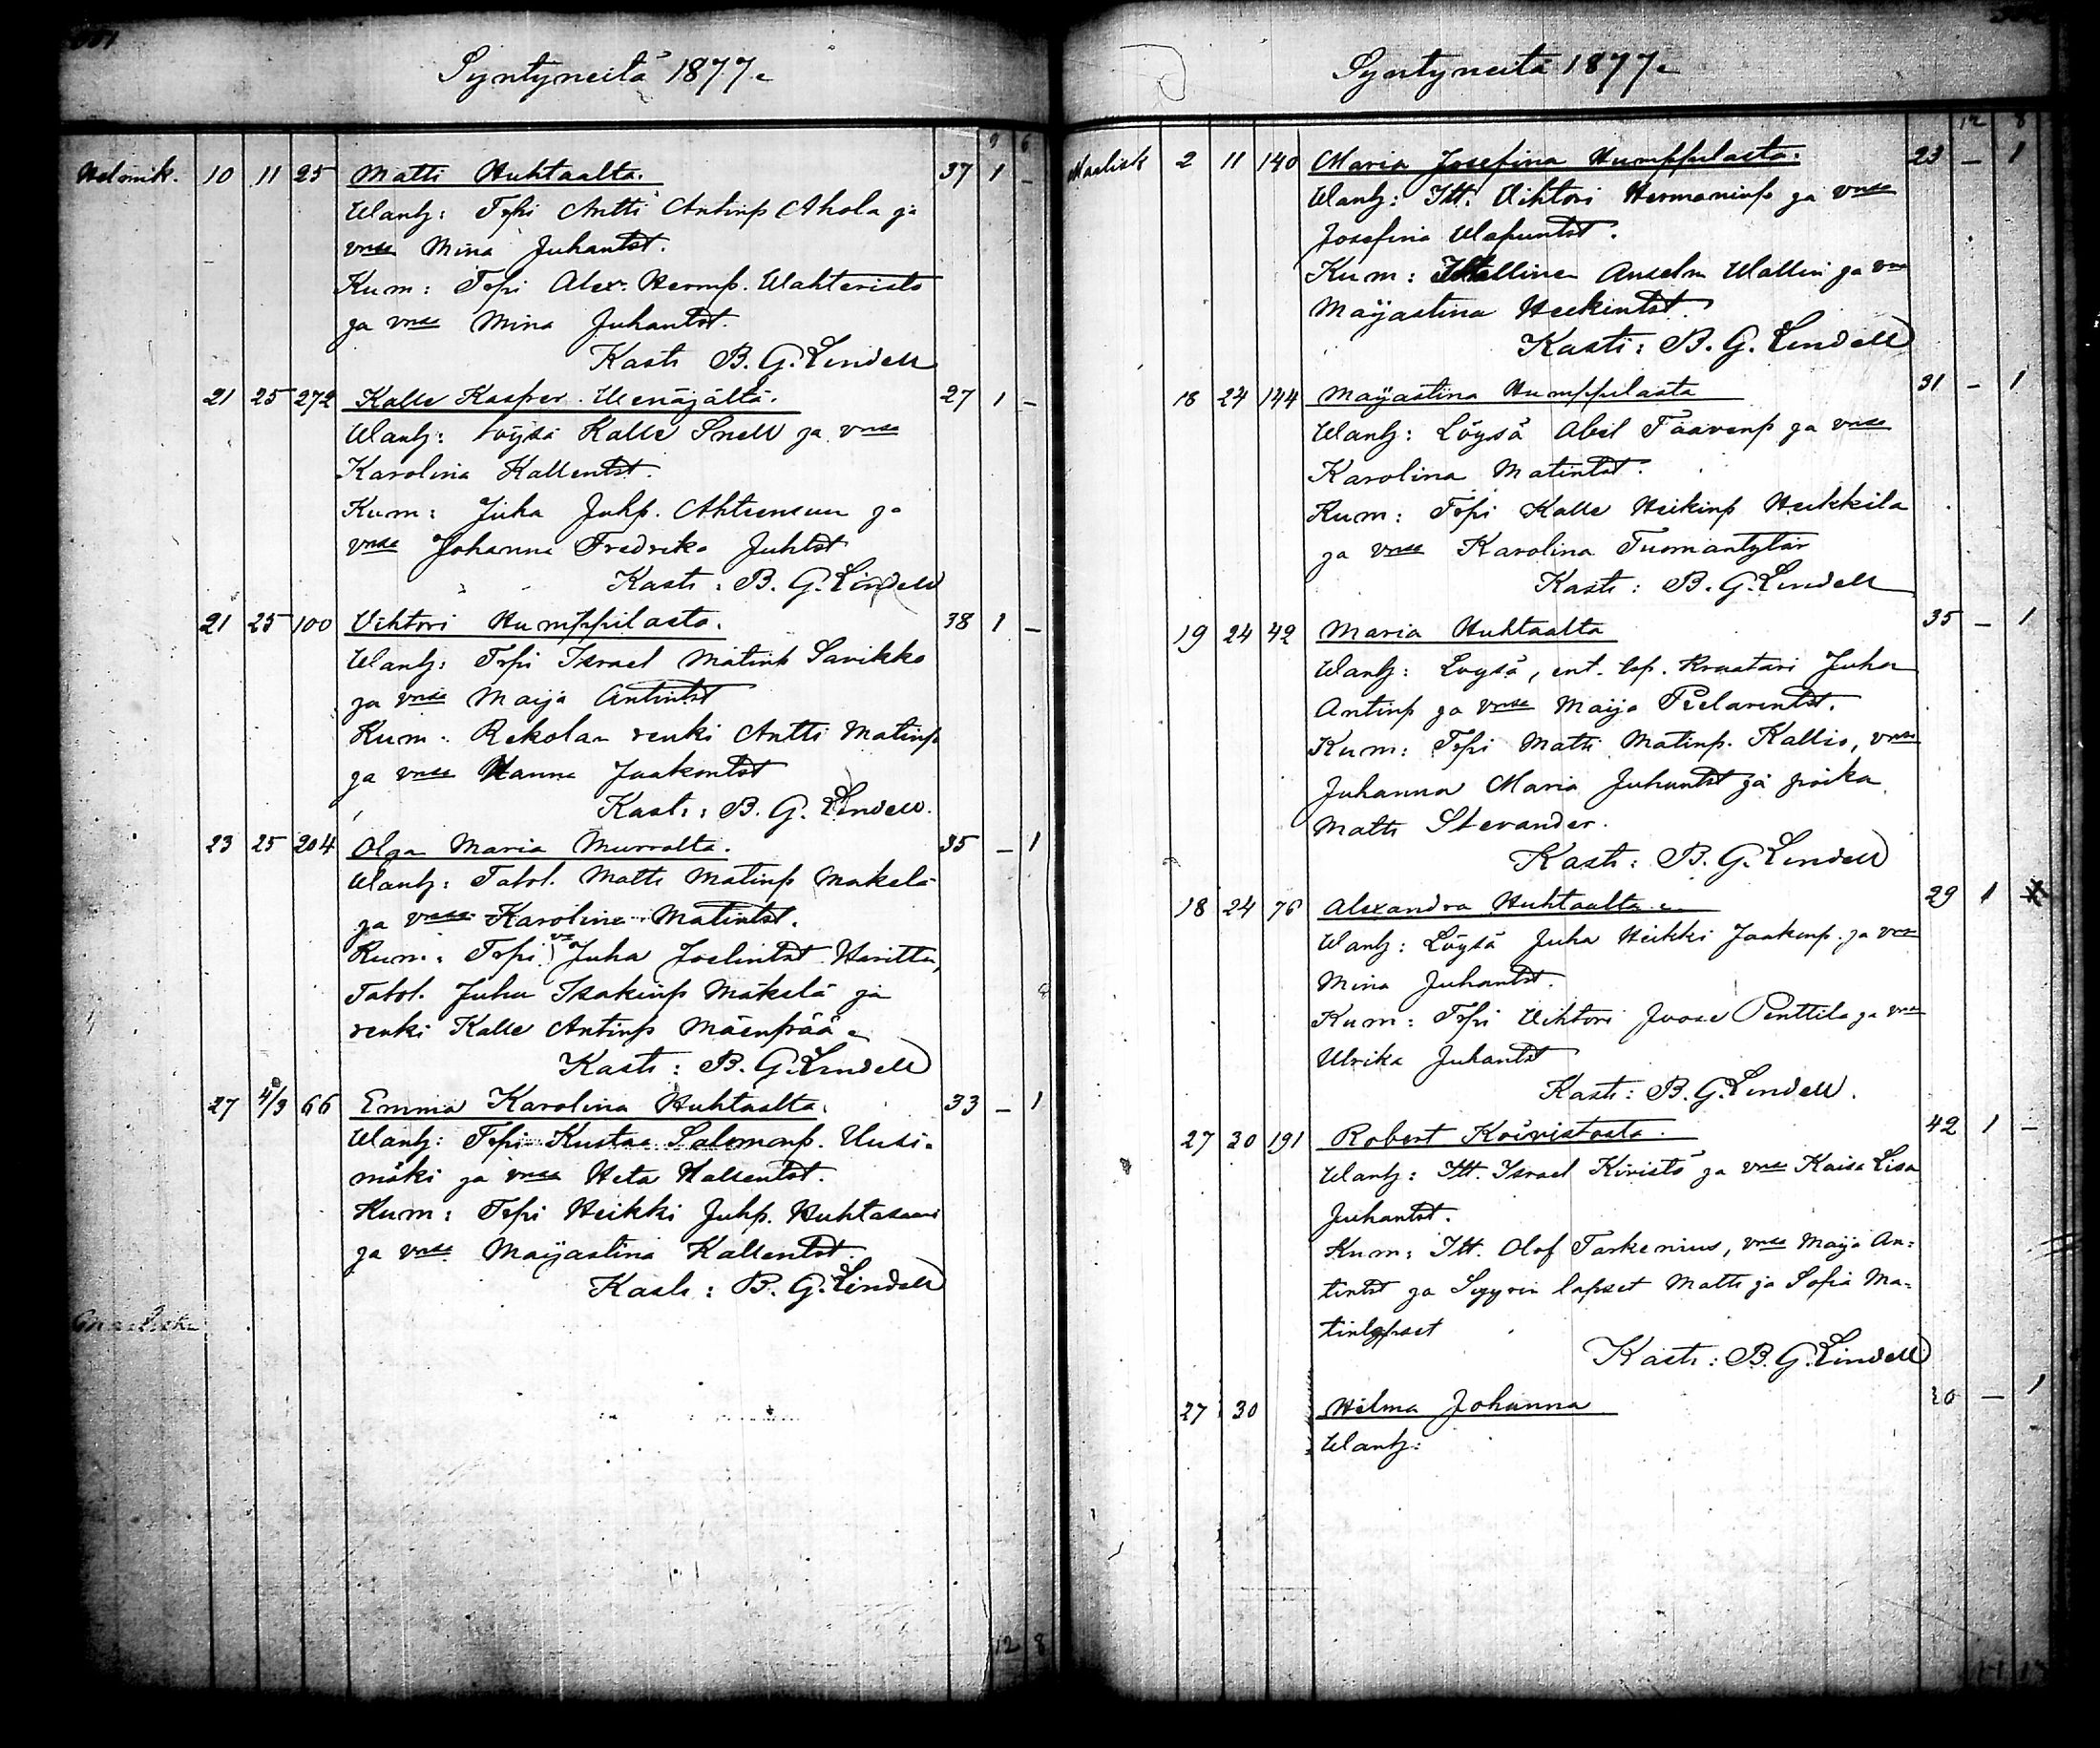 Syntyneitä 1877.
9 6
Helmik. 10 11 25 Matti Huhtaalta. 37 1 –
Wanh: Trpi Antti Antinp Ahola ja
vmsa Mina Juhantst.
Kum: Trpi Alex. Hermp. Wahteristo
ja vmsa Mina Juhantst.
Kasti B. G. Lindell
21 25 272 Kalle Kasper Wenäjältä. 27 1 –
Wanh: Löysä Kalle Snell ja vmsa
Karolina Kallentst.
Kum: Juha Juhp. Ahtiensuu ja
vmsa Johanna Fredrika Juhtst
Kasti: B. G. Lindell
21 25 100 Vihtori Humppilasta. 38 1 –
Wanh: Trpi Israel Matinp Savikko
ja vmsa Maija Antintst
Kum: Rekolan renki Antti Matinp
ja vmsa Hanna Jaakontst
Kasti: B. G. Lindell.
23 25 204 Olga Maria Murrolta. 35 – 1
Wanh: Talol. Matti Matinp Mäkelä
ja vmsa Karolina Matintst.
Kum: Trpi Juha Joelintst Haritu,
Talol. Juha Isakinp Mäkelä ja
renki Kalle Antinp Mäenpää.
Kasti: B. G. Lindell
27 4/3 66 Emma Karolina Huhtaalta. 33 – 1
Wanh: Trpi Kustaa Salomonp. Uusi-
mäki ja vmsa Heta Kallentst.
Kum: Trpi Heikki Juhp. Huhtasaari
ja vmsa Maijastina Kallentst.
Kasti: B. G. Lindell
Maalisk.
12 8
Syntyneitä 1877.
12 8
Maalisk 2 11 140 Maria Josefina Humppilasta. 23 – 1
Wanh: Itt. Vihtori Hermaninp ja vmsa
Josefina Wapuntst.
Kum: Itsellinen Anselm Wallin ja vm
Maijastina Heikintst.
Kasti: B. G. Lindell
18 24 144 Maijastina Humppilasta 31 – 1
Wanh: Löysä Abel Taavenp ja vmsa
Karolina Matintst.
Kum: Trpi Kalle Heikinp Heikkilä
ja vmsa Karolina Tuomantytär
Kasti: B. G. Lindell
19 24 42 Maria Huhtaalta 35 – 1
Wanh: Löysä, ent. tsp. Kraatari Juha
Antinp ja vmsa Maija Pelarintst.
Kum: Trpi Matti Matinp. Kallio, vmsa
Juhanna Maria Juhantst ja poika
Matti Stevander.
Kasti: B. G. Lindell
18 24 76 Alexandra Huhtaalta 29 1
Wanh: Löysä Juha Heikki Jaakonp. ja vmsa
Mina Juhantst.
Kum: Trpi Vihtori Joose Penttilä ja vmsa
Ulrika Juhantst
Kasti: B. G. Lindell.
27 30 191 Robert Koivistosta. 42 1 –
Wanh: Itt. Israel Kivistö ja vmsa Kaisa Lisa
Juhantst.
Kum: Itt. Olof Tarkenius, vmsa Maija An-
tintst ja Syyrin lapset Matti ja Sofia Ma-
tinlapset
Kasti: B. G. Lindell
27 30 Hilma Johanna – 1
Wanh: